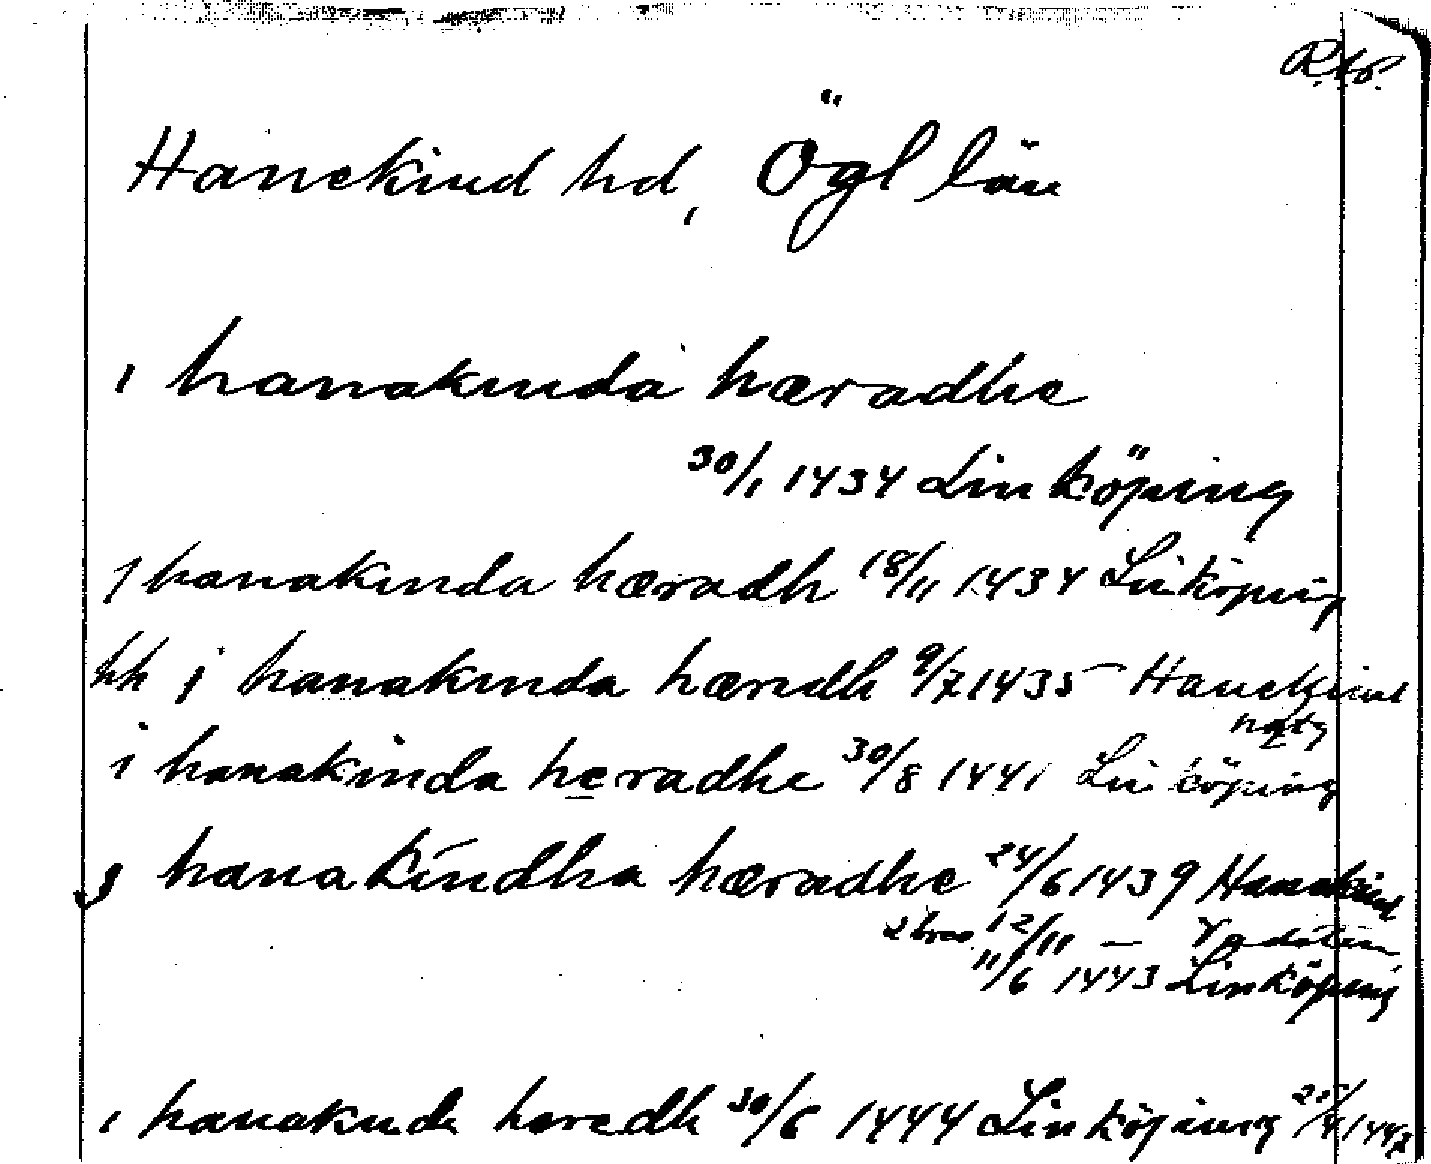 Hanekind hd, Ögl län
i hanakinda hæradhe
30/1 1434 Linköping
j hanakinda hæradh 18/11 1434 Linköping
hh j hanakinda hæradh 9/7 1435 Hanekind
i hanakinda heradhe 30/8 1441 Linköping
j hanakindha hæradhe 24/6 1439 Hanekind
2 brev 12/11 — Vadstena
11/6 1443 Linköping
i hanakinde heredh 30/6 1444 Linköping